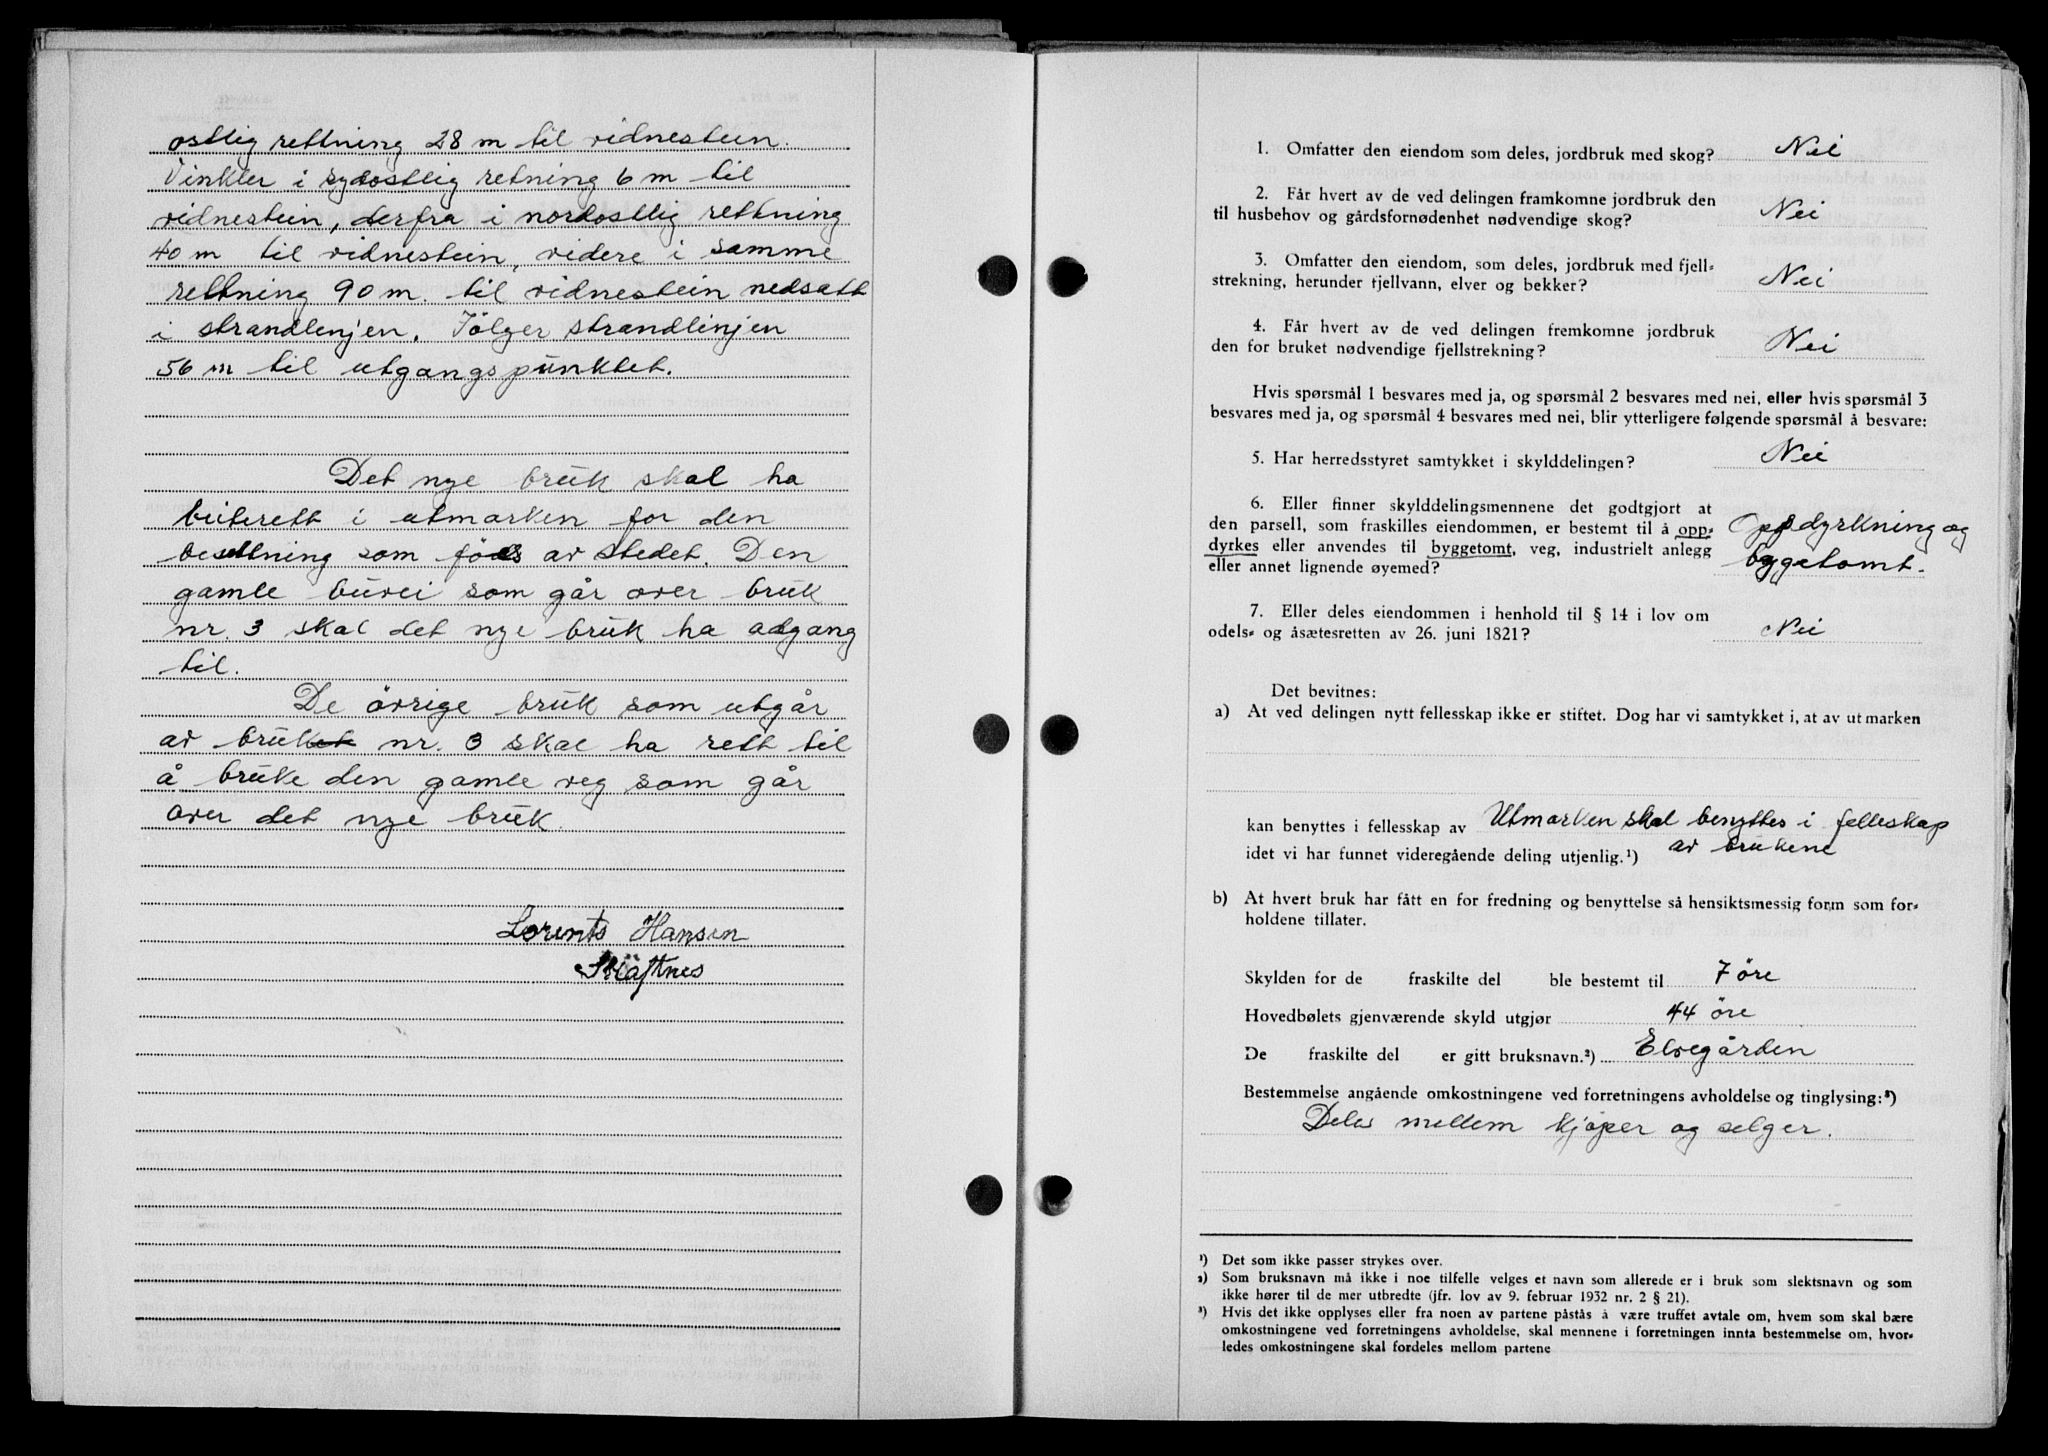 ostlig rettning 28 m til vidnestein.
Vinkler i sydostlig retning 6 m til
vidnestein, derfra i nordostlig rettning
40 m til vidnestein, videre i samme
rettning 90 m. til vidnestein nedsatt
i strandlinjen. Fölger strandlinjen
56 m til utgangspunktet.
Det nye bruk skal ha
beiterett i utmarken for den
besettning som födes av stedet. Den
gamle buvei som går over bruk
nr. 3 skal det nye bruk ha adgang
til.
De övrige bruk som utgår
av bruket nr. 3 skal ha rett til
å bruke den gamle veg som går
over det nye bruk.
Lorents Hansen
1. Omfatter den eiendom som deles, jordbruk med skog? Nei
2. Får hvert av de ved delingen framkomne jordbruk den
til husbehov og gårdsfornødenhet nødvendige skog? Nei
3. Omfatter den eiendom, som deles, jordbruk med fjell-
strekning, herunder fjellvann, elver og bekker? Nei
4. Får hvert av de ved delingen fremkomne jordbruk
den for bruket nødvendige fjellstrekning? Nei
Hvis spørsmål 1 besvares med ja, og spørsmål 2 besvares med nei, eller hvis spørsmål 3
besvares med ja, og spørsmål 4 besvares med nei, blir ytterligere følgende spørsmål å besvare:
5. Har herredsstyret samtykket i skylddelingen? Nei
6. Eller finner skylddelingsmennene det godtgjort at
den parsell, som fraskilles eiendommen, er bestemt til å opp- Oppdyrkning og
dyrkes eller anvendes til byggetomt, veg, industrielt anlegg
eller annet lignende øyemed? byggetomt.
7. Eller deles eiendommen i henhold til § 14 i lov om
odels- og åsætesretten av 26. juni 1821? Nei
Det bevitnes:
a) At ved delingen nytt fellesskap ikke er stiftet. Dog har vi samtykket i, at av utmarken
kan benyttes i fellesskap av Utmarken skal benyttes i felleskap
idet vi har funnet videregående deling utjenlig.¹) av brukene
b) At hvert bruk har fått en for fredning og benyttelse så hensiktsmessig form som for-
holdene tillater.
Skylden for de fraskilte del ble bestemt til 7 öre
Hovedbølets gjenværende skyld utgjør 44 öre
De fraskilte del er gitt bruksnavn.²) Elvegården
Bestemmelse angående omkostningene ved forretningens avholdelse og tinglysing:³)
Deles mellem kjøper og selger.
¹) Det som ikke passer strykes over.
²) Som bruksnavn må ikke i noe tilfelle velges et navn som allerede er i bruk som slektsnavn og som
ikke hører til de mer utbredte (jfr. lov av 9. februar 1932 nr. 2 § 21).
³) Hvis det ikke opplyses eller fra noen av partene påstås å være truffet avtale om, hvem som skal bære
omkostningene ved forretningens avholdelse, skal mennene i forretningen innta bestemmelse om, hvor-
ledes omkostningene skal fordeles mellom partene